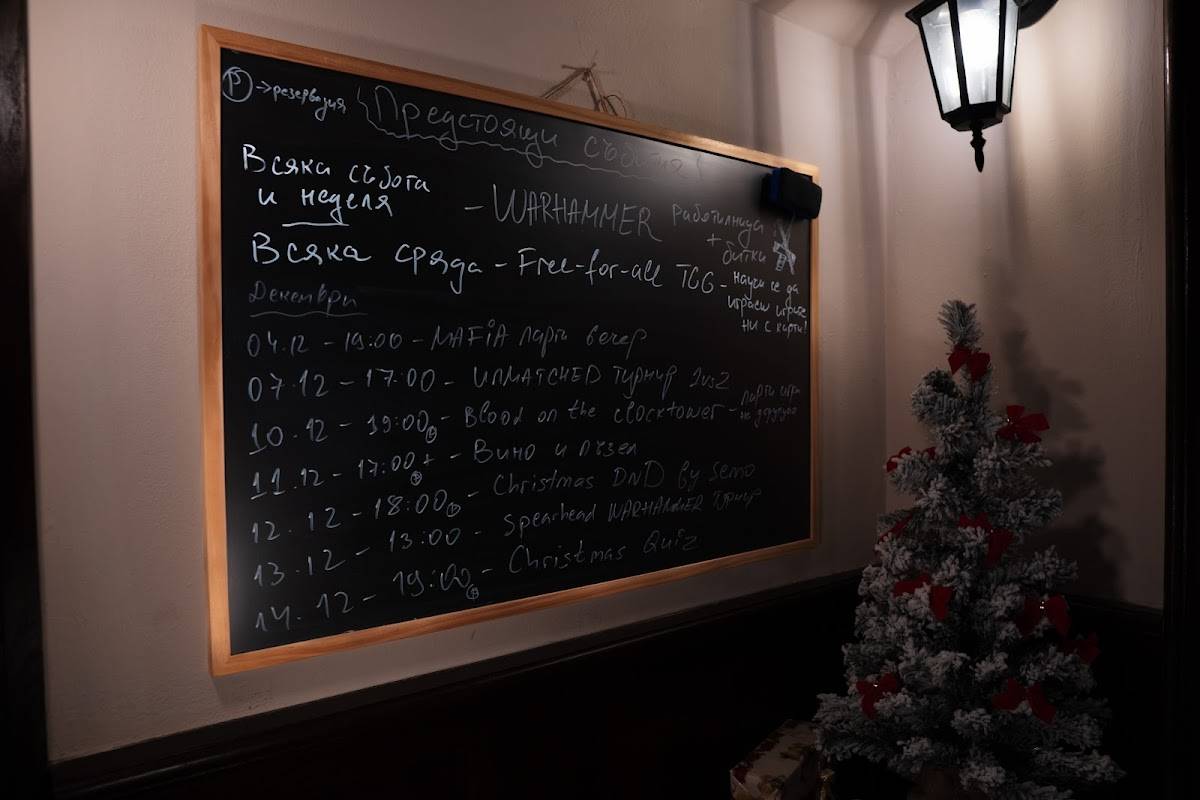 (P) → резервация
Предстоящи събития!
Всяка събота
и неделя
- WARHAMMER работилница
+ битки
Всяка сряда - Free-for-all TCG - научи се да
играеш игрите
ни с карти!
Декември
04.12 - 19:00 - MAFiA парти вечер
07.12 - 17:00 - UNMATCHED Турнир 2vs2
10.12 - 19:00 (P) - Blood on the clocktower - парти игра
на
11.12 - 17:00+ (P) - Вино и пъзел
12.12 - 18:00 (P) - Christmas DnD by Semo
13.12 - 13:00 - Spearhead WARHAMMER Турнир
14.12 - 19:00 (P) - Christmas Quiz